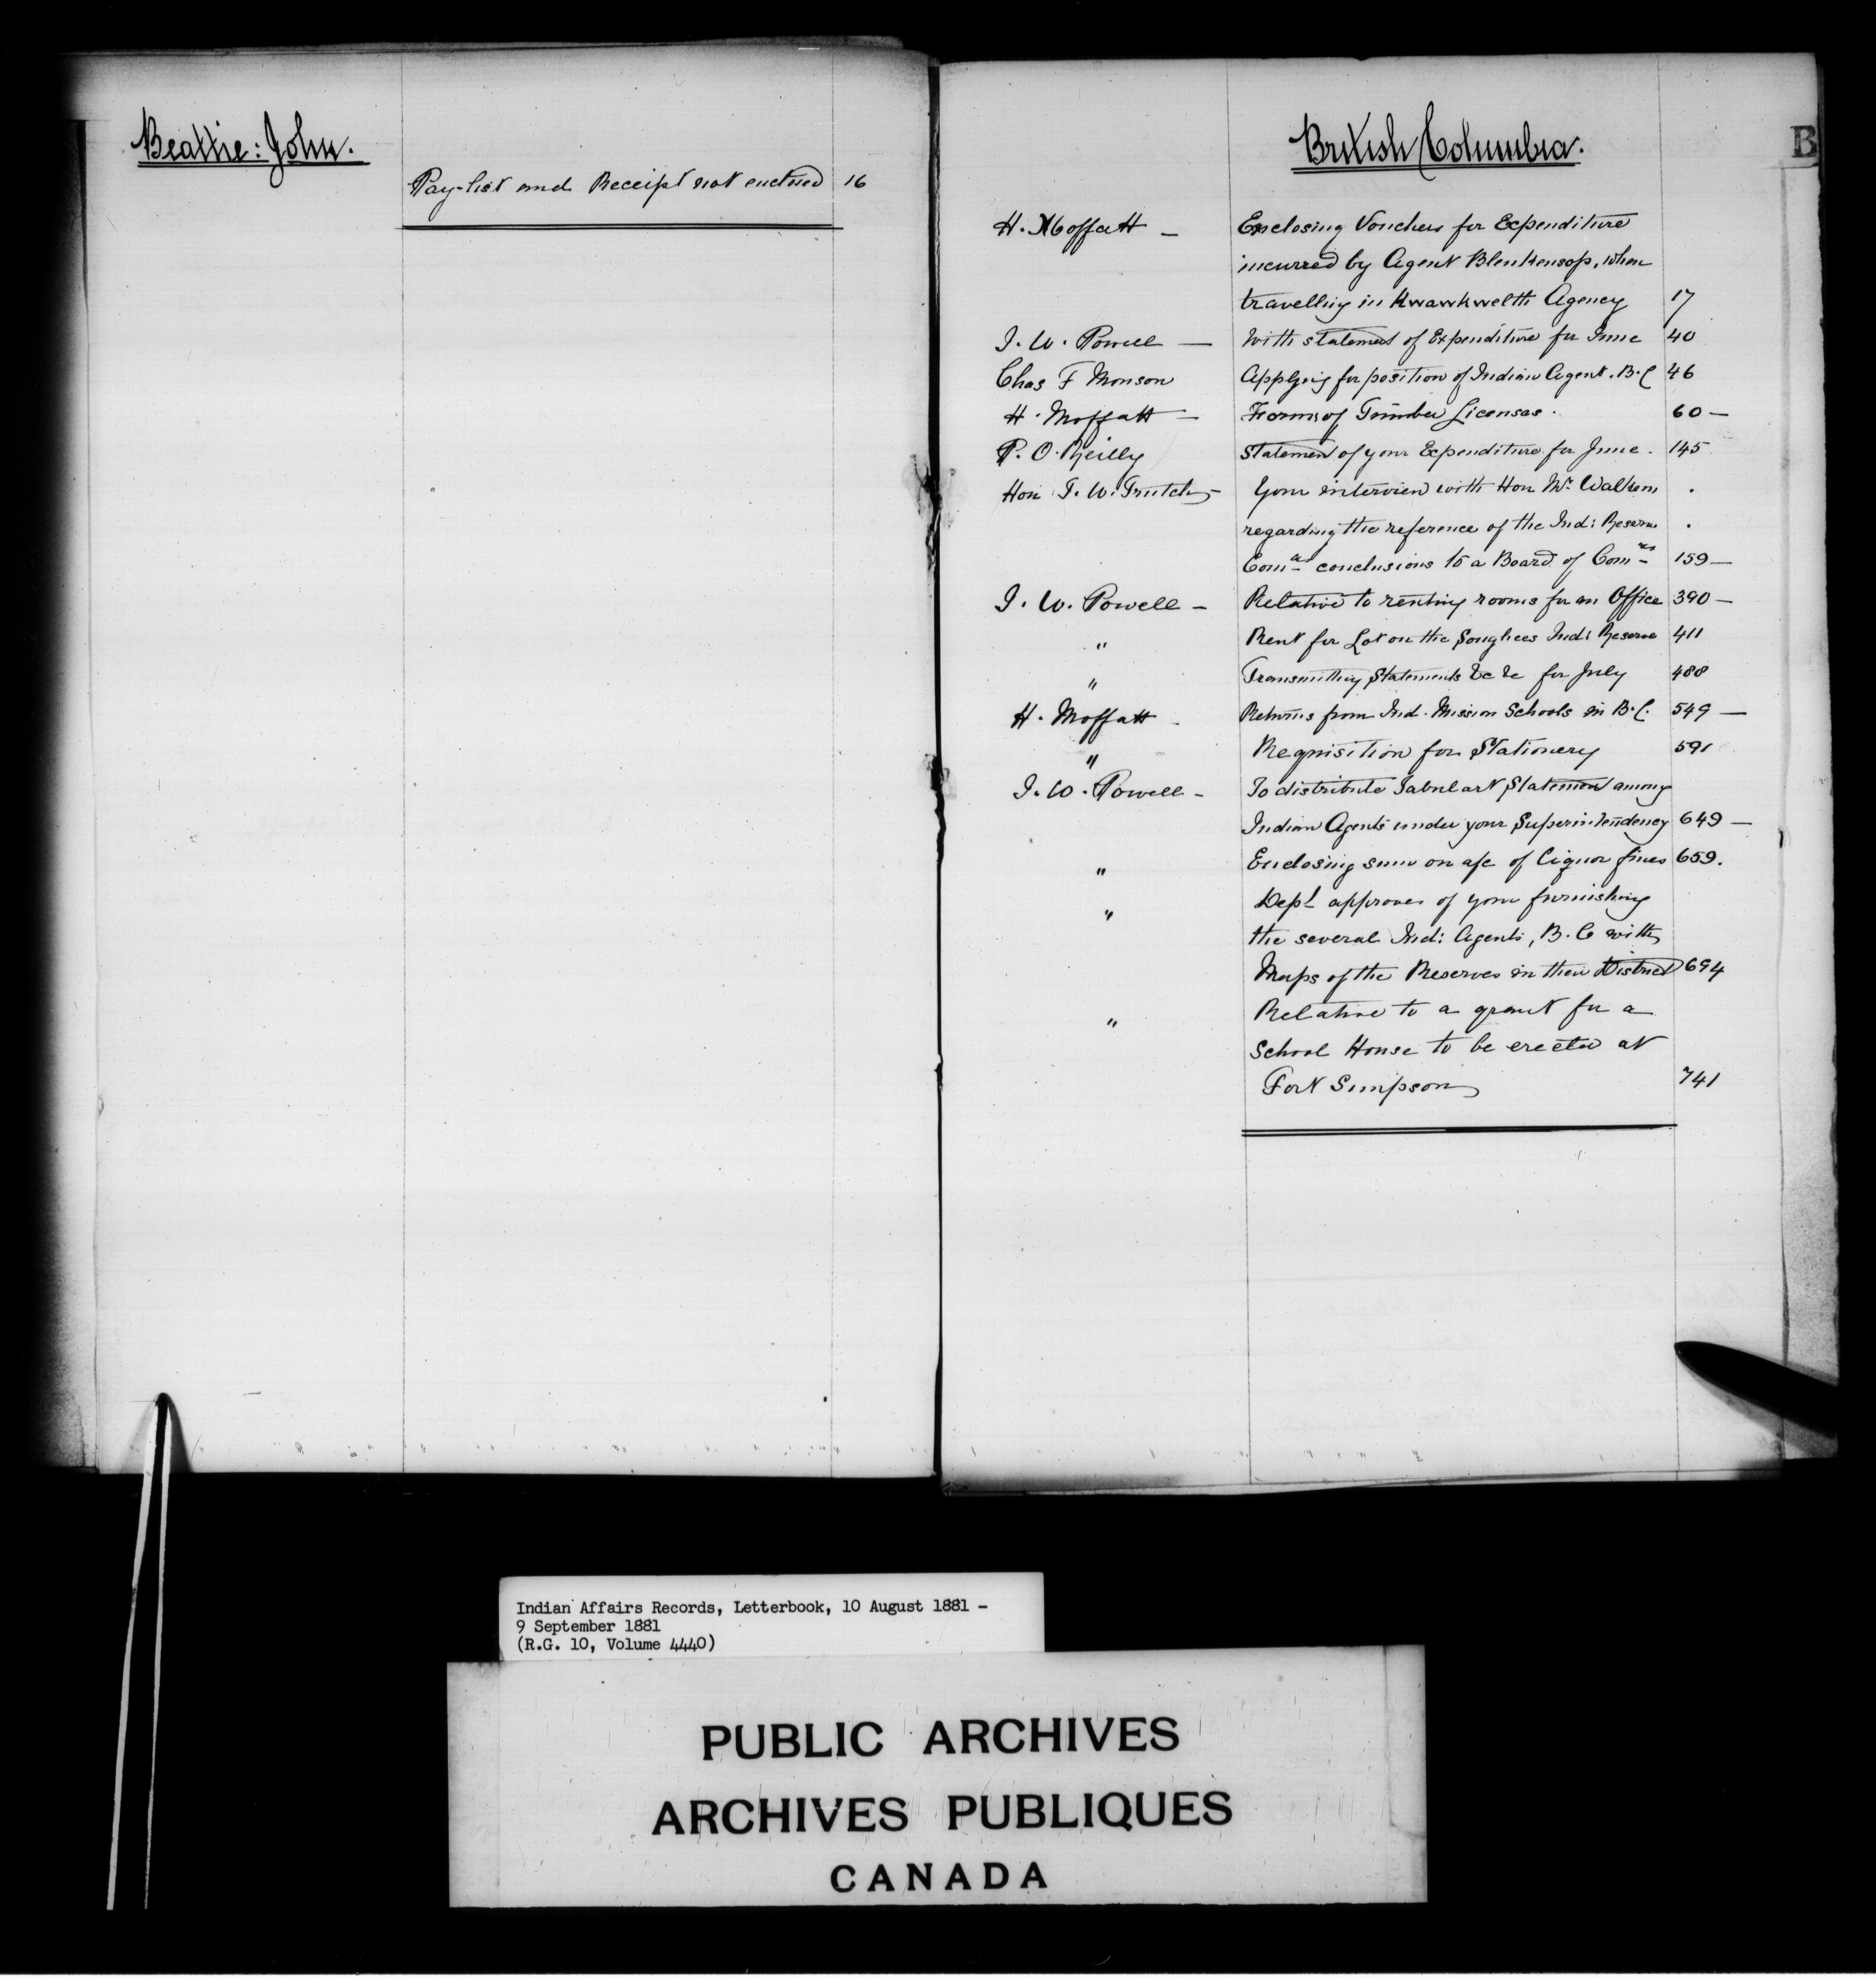 Beattie: John.
Pay-list and Receipt not enclosed 16
British Columbia.
B
H. Moffatt — Enclosing Vouchers for Expenditure
incurred by Agent Blenkensop, when
travelling in Kwawkwelth Agency 17
I. W. Powell — With statement of Expenditure for June 40
Chas F Monson Applying for position of Indian Agent. B.C 46
H. Moffatt — Forms of Timber Licenses. 60 —
P. O. Reilly Statement of your Expenditure for June. 145
Hon J. W. Trutch — Your interview with Hon Mr. Walkem
regarding the reference of the Ind: Reserve
Comrs conclusions to a Board of Comrs 159 —
I. W. Powell — Relative to renting rooms for an Office 390 —
" Rent for Lot on the Songhees Ind: Reserve 411
" Transmitting Statements &c &c for July 488
H. Moffatt - Returns from Ind. Mission Schools in B.C. 549 —
" Requisition for Stationery 591
I. W. Powell - To distribute Tabular Statement among
Indian Agents under your Superintendency 649 —
" Enclosing sum on a/c of Liquor fines 659.
" Dept approves of your furnishing
the several Ind: Agents, B.C with
Maps of the Reserves in their District 694
" Relative to a grant for a
School House to be erected at
Fort Simpson 741
Indian Affairs Records, Letterbook, 10 August 1881 -
9 September 1881
(R.G. 10, Volume 4440)
PUBLIC ARCHIVES
ARCHIVES PUBLIQUES
CANADA